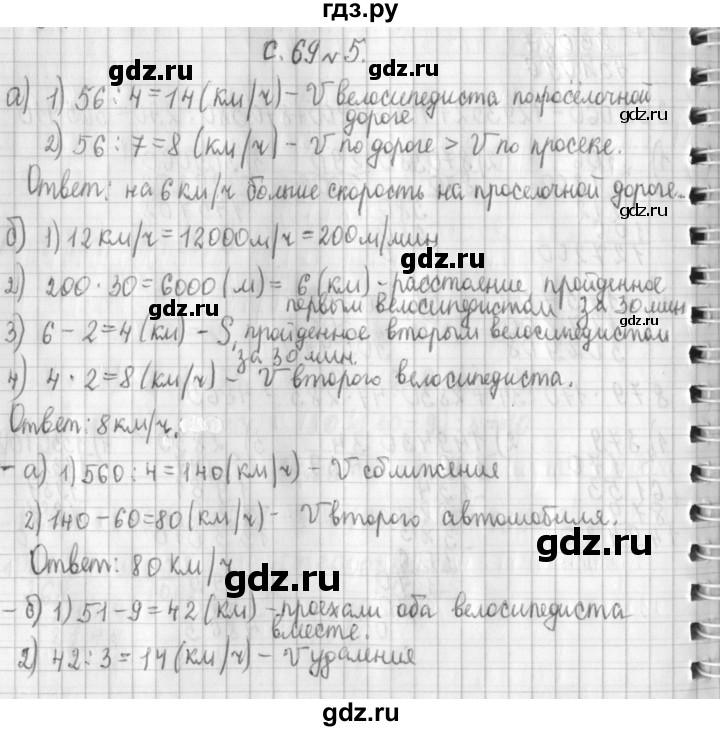 гдз.ру
с. 69 № 5.
gdz.ru
а) 1) 56 : 4 = 14 (км/ч) – V велосипедиста по просёлочной
дороге
gdz.ru
gdz.ru
2) 56 : 7 = 8 (км/ч) – V по дороге > V по просеке.
Ответ: на 6 км/ч больше скорость на проселочной дороге.
gdz.ru
б) 1) 12 км/ч = 12000 м/ч = 200 м/мин
gdz.ru
2) 200 · 30 = 6000 (м) = 6 (км) – расстояние пройденное
первым велосипедистом за 30 мин
gdz.ru
3) 6 – 2 = 4 (км) – S, пройденное вторым велосипедистом
за 30 мин.
4) 4 · 2 = 8 (км/ч) – V второго велосипедиста.
Ответ: 8 км/ч.
gdz.ru
– а) 1) 560 : 4 = 140 (км/ч) – V сближения
2) 140 – 60 = 80 (км/ч) – V второго автомобиля.
gdz.ru
Ответ: 80 км/ч
gdz.ru
– б) 1) 51 – 9 = 42 (км) – проехали оба велосипедиста
вместе.
gdz.ru
2) 42 : 3 = 14 (км/ч) – V удаления
gdz.ru
gdz.ru